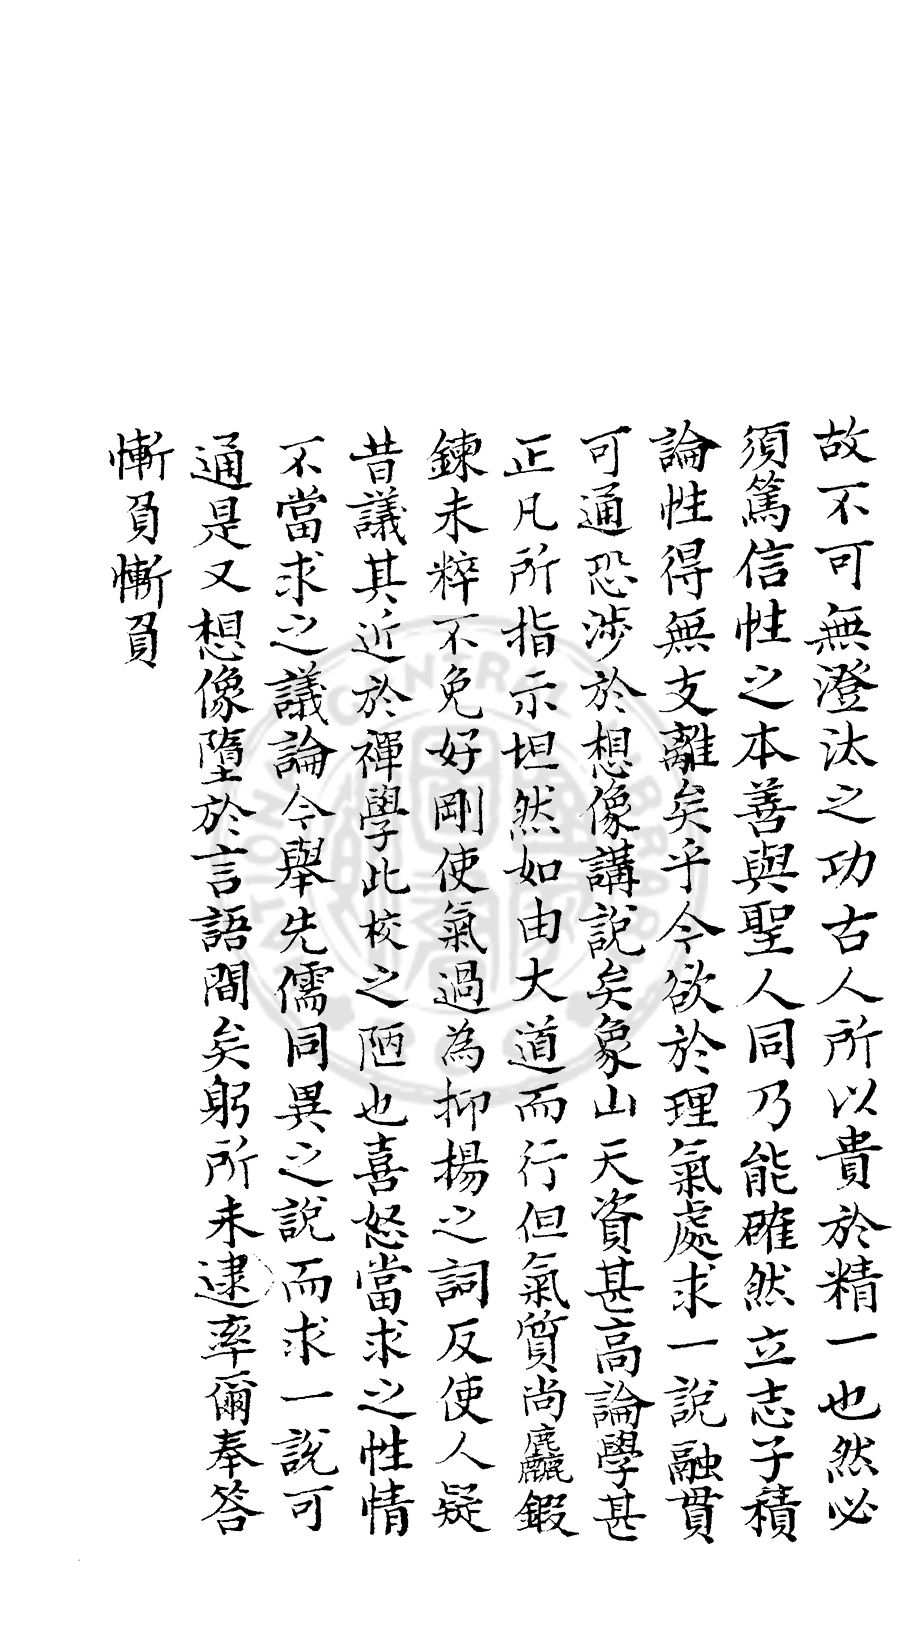 故不可無澄汰之功古人所以貴於精一也然必
須篤信性之本善與聖人同乃能確然立志子積
論性得無支離矣乎今欲於理氣處求一說融貫
可通恐涉於想像講說矣象山天資甚高論學甚
正凡所指示坦然如由大道而行但氣質尚麤鍜
鍊未粹不免好剛使氣過為抑揚之詞反使人疑
昔議其近於禪學此校之陋也喜怒當求之性情
不當求之議論今舉先儒同異之說而求一說可
通是又想像墮於言語間矣躬所未逮率爾奉答
慚負慚負